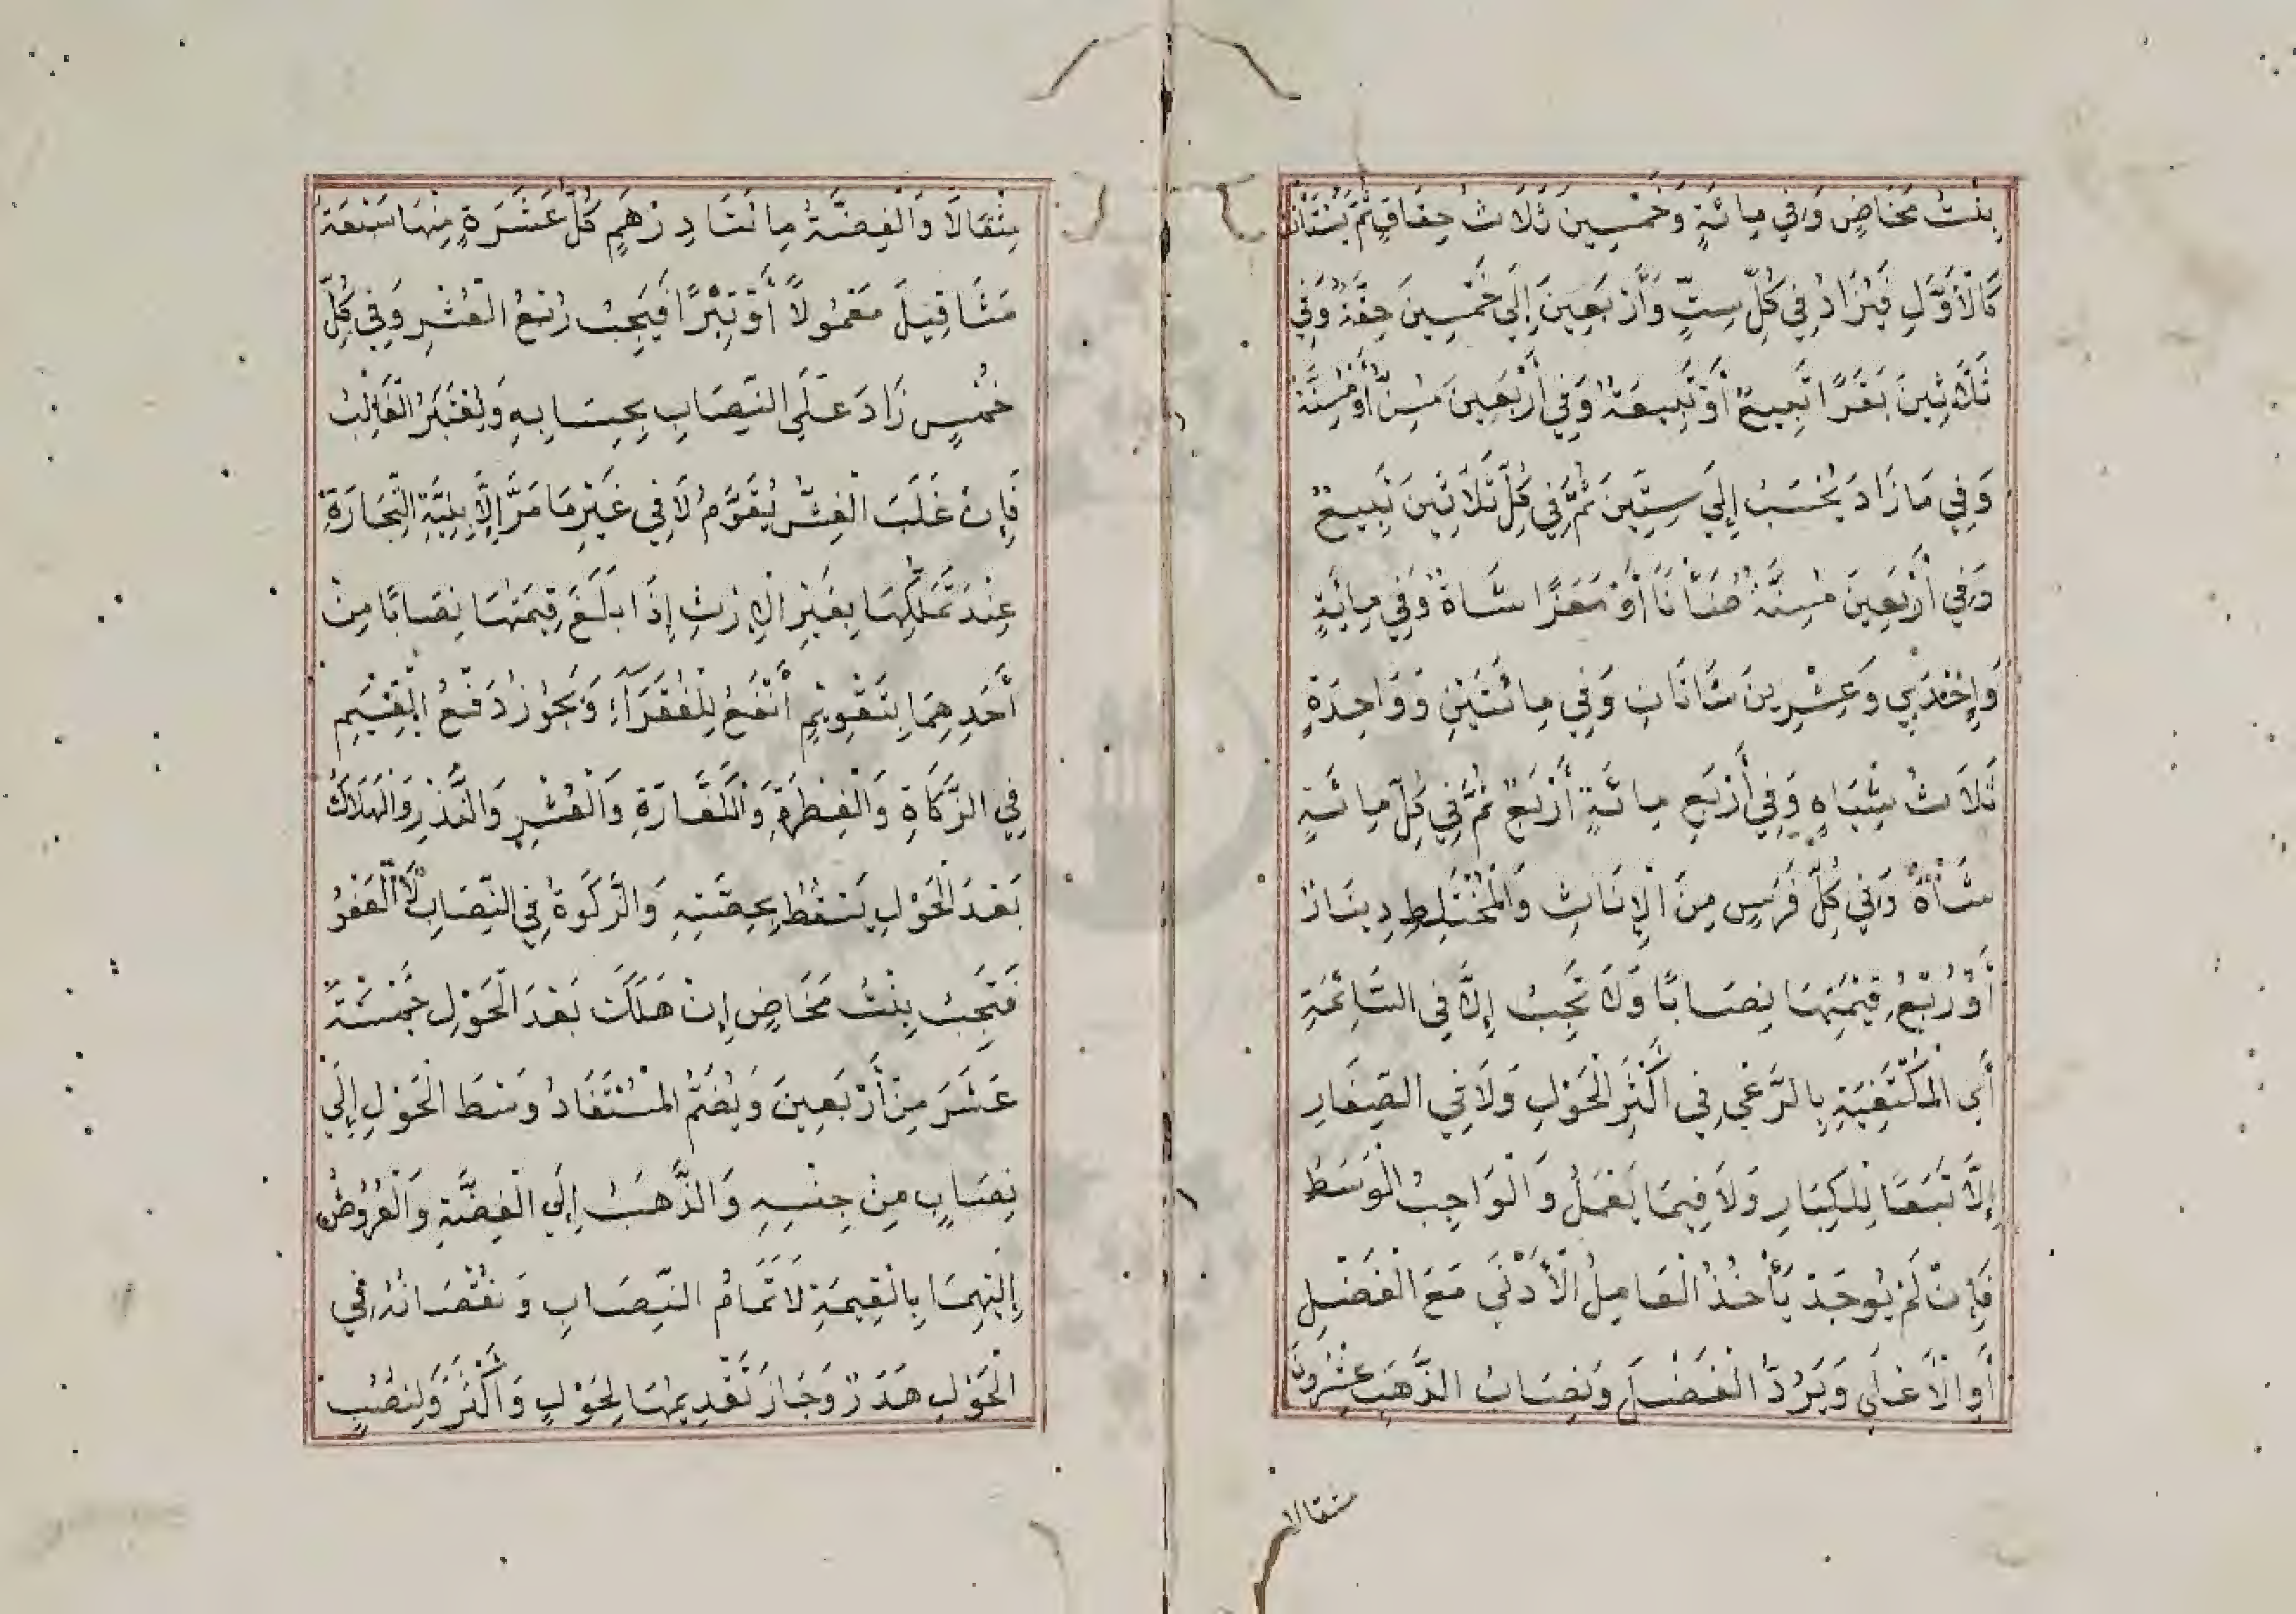 بِنْتُ مَخَاضٍ وَفِي مِائَةٍ وَخَمْسِينَ ثَلَاثُ حِقَاقٍ ثُمَّ يُسْتَأْنَفُ
كَالْأَوَّلِ فَيُزَادُ فِي كُلِّ سِتٍّ وَأَرْبَعِينَ إِلَى خَمْسِينَ حِقَّةٌ وَفِي
ثَلَاثِينَ بَقَرًا تَبِيعٌ أَوْ تَبِيعَةٌ وَفِي أَرْبَعِينَ مُسِنٌّ أَوْ مُسِنَّةٌ
وَفِي مَا زَادَ يُحْسَبُ إِلَى سِتِّينَ ثُمَّ فِي كُلِّ ثَلَاثِينَ تَبِيعٌ
وَفِي أَرْبَعِينَ مُسِنَّةٌ ضَأْنًا أَوْ مَعَزًا شَاةٌ وَفِي مِائَةٍ
وَإِحْدَى وَعِشْرِينَ شَاتَانِ وَفِي مِائَتَيْنِ وَوَاحِدَةٍ
ثَلَاثُ شِيَاهٍ وَفِي أَرْبَعِ مِائَةٍ أَرْبَعٌ ثُمَّ فِي كُلِّ مِائَةٍ
شَاةٌ وَفِي كُلِّ فَرَسٍ مِنَ الْإِنَاثِ وَالْمُخْتَلِطِ دِينَارٌ
أَوْ رُبْعُ قِيْمَتِهَا نِصَابًا وَلَا تَجِبُ إِلَّا فِي السَّائِمَةِ
أَيِ الْمُكْتَفِيَةِ بِالرَّعْيِ فِي أَكْثَرِ الْحَوْلِ وَلَا فِي الصِّغَارِ
إِلَّا تَبَعًا لِلْكِبَارِ وَلَا فِيمَا يَعْمَلُ وَالْوَاجِبُ الْوَسَطُ
فَإِنْ لَمْ يُوجَدْ يَأْخُذُ الْعَامِلُ الْأَدْنَى مَعَ الْفَضْلِ
أَوِ الْأَعْلَى وَيَرُدُّ الْفَضْلَ وَنِصَابُ الذَّهَبِ عِشْرُونَ
مثقالا
مِثْقَالًا وَالْفِضَّةُ مِائَتَا دِرْهَمٍ كُلُّ عَشَرَةٍ مِنْهَا سَبْعَةُ
مَثَاقِيلَ مَعْمُولًا أَوْ تِبْرًا فَيَجِبُ رُبْعُ الْعُشْرِ وَفِي كُلِّ
خُمْسٍ زَادَ عَلَى النِّصَابِ بِحِسَابِهِ وَيُعْتَبَرُ الْغَالِبُ
فَإِنْ غَلَبَ الْغِشُّ يُقَوَّمُ لَا فِي غَيْرِ مَا مَرَّ إِلَّا بِنِيَّةِ التِّجَارَةِ
عِنْدَ تَمَلُّكِهَا بِغَيْرِ الْإِرْثِ إِذَا بَلَغَ قِيمَتُهَا نِصَابًا مِنْ
أَحَدِهِمَا بِتَقْوِيْمٍ أَنْفَعُ لِلْفُقَرَآءِ وَيَجُوزُ دَفْعُ الْقِيَمِ
فِي الزَّكَاةِ وَالْفِطْرَةِ وَالْكَفَّارَةِ وَالْعُشْرِ وَالنَّذْرِ وَالْهَلَاكُ
بَعْدَ الْحَوْلِ يُسْقِطُ بِحِصَّتِهِ وَالزَّكَوةُ فِي النِّصَابِ لَا الْعَفْوُ
فَتَجِبُ بِنْتُ مَخَاضٍ إِنْ هَلَكَتْ بَعْدَ الْحَوْلِ خَمْسَةَ
عَشَرَ مِنْ أَرْبَعِينَ وَيُضَمُّ الْمُسْتَفَادُ وَسْطَ الْحَوْلِ إِلَى
نِصَابٍ مِنْ جِنْسِهِ وَالذَّهَبُ إِلَى الْفِضَّةِ وَالْعُرُوضُ
إِلَيْهِمَا بِالْقِيمَةِ لَا تَمَامُ النِّصَابِ وَنُقْصَانُهُ فِي
الْحَوْلِ هَدَرٌ وَجَازَ تَقْدِيمُهَا لِحَوْلٍ وَأَكْثَرَ وَلِنُصُبٍ